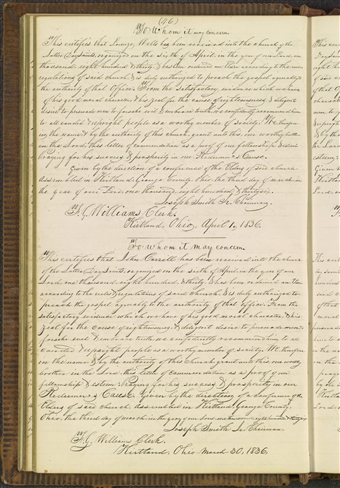 (56)
To Whom it may concern
This certifies that Lorenzo Wells has been received into the church of the
Latter Day Saints, organized on the sixth of April, in the year of our Lord, one
thousand, eight hundred, & thirty & has been ordained an Elder according to the rules
regulations of said church, & is duly authorized to preach the gospel agreeably to
the authority of that office. From the satisfactory evidence which we have
of his good moral character, & his zeal for the cause of righteousness, & diligent
desire to persuade men to forsake evil & embrace truth, we confidently recommend him
to all candid & upright people as a worthy member of society. We therefore
in the name, & by the authority of this church, grant unto this, our worthy brother
in the Lord, this letter of commendation as a proof of our fellowship & esteem
praying for his success & prosperity in our Redeemer's Cause.
Given by the direction of a conference of the Elders of said church
Assembled in Kirtland Geauga County, Ohio the third day of March in
the year of our Lord, one thousand, eight hundred, & thirty six.
Joseph Smith Jr. Chairman.
F. G. Williams, Clerk.
Kirtland, Ohio, April 1, 1836.
To Whom it may concern
This certifies that John Carroll has been received into the church
of the Latter Day Saints, organized on the sixth of April, in the year of our
Lord, one thousand, eight hundred, & thirty & has been ordained
according to the rules & regulations of said church, & is duly authorized to
preach the gospel agreeably to the authority of that office. From the
satisfactory evidence which we have of his good moral character, & his
zeal for the cause of righteousness, & diligent desire to persuade men to
forsake evil & embrace truth, we confidently recommend him to all
candid & upright people as a worthy member of society. We therefore
in the name, & by the authority of this church grant unto this our worthy
brother in the Lord, this letter of commendation as a proof of our
fellowship & esteem praying for his success & prosperity in our
Redeemer's Cause. Given by the direction of a conference of the
Elders of said church assembled in Kirtland Geauga County,
Ohio, the third day of March in the year of our Lord one thousand eight hundred & thirty six
Joseph Smith Jr. Chairman
F. G. Williams Clerk.
Kirtland, Ohio March 30, 1836.